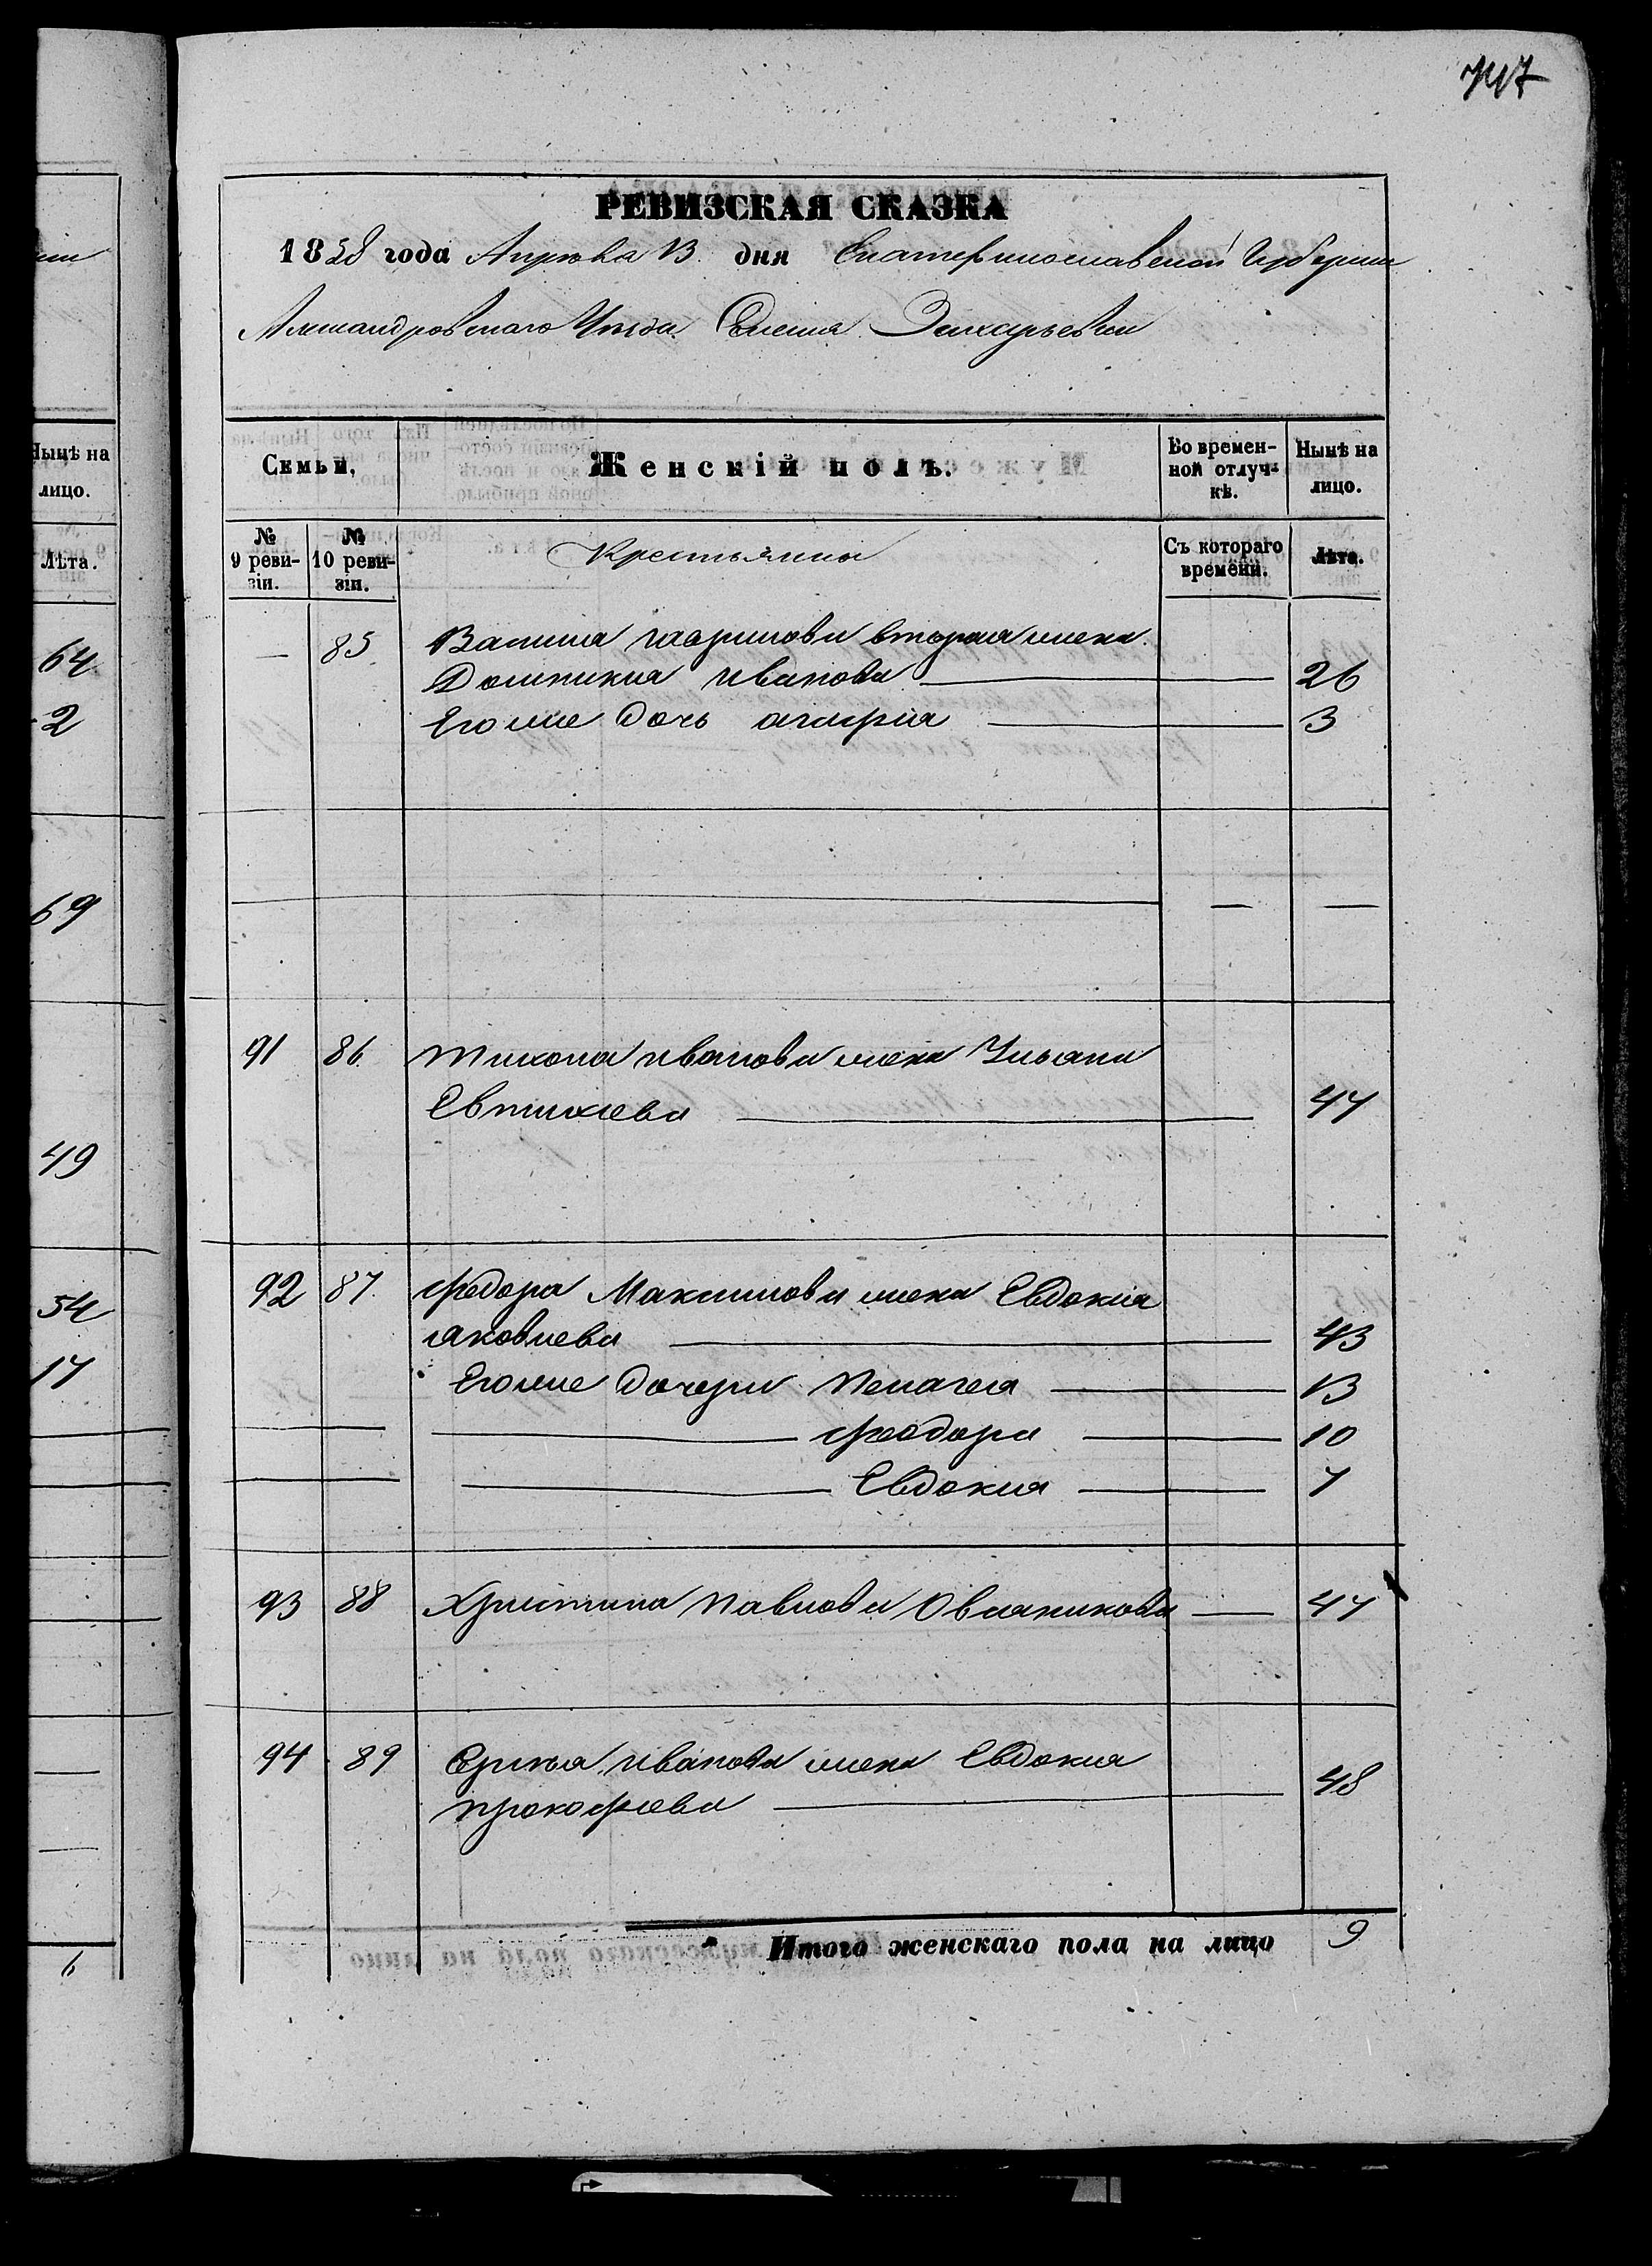 747
РЕВИЗСКАЯ СКАЗКА
1858 года Апрѣля 13 дня Екатеринославской Губерніи
Александровскаго Уѣзда Селенія Захарьевки
Семьи,
Женскій полъ.
Во времен-
ной отлуч-
кѣ.
Нынѣ на
лицо.
№
9 реви-
зіи.
№
10 реви-
зіи.
Крестьянъ
Съ котораго
времени.
Лѣта.
— 85 Василія гаврилова вторая жена
Домникия иванова 26
Его же дочь агафия 3
91 86. тихона иванова жена Ульяна
Евтихиева 47
92 87. федора Максимова жена Евдокия
яковлева 43
Его же дочери пелагея 13
феодора 10
Евдокия 7
93 88 Христина павлова Овсяникова 47
94 89 иванова жена Евдокия
прокофиева 48
Итого женскаго пола на лицо 9
Нынѣ на
лицо.
Лѣта.
64
2
69
49
54
17
6